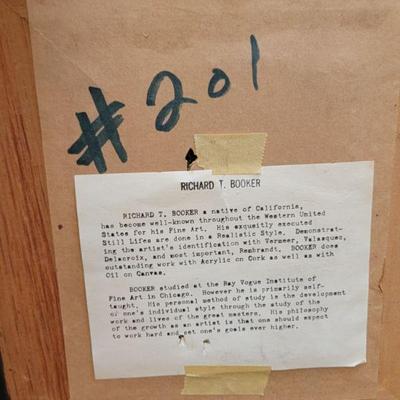 #201
RICHARD T. BOOKER
RICHARD T. BOOKER a native of California,
has become well-known throughout the Western United
States for his Fine Art. His exqusitly executed
Still Lifes are done in a Realistic Style. Demonstrat-
ing the artist's identification with Vermeer, Valasquez,
Delacroix, and most important, Rembrandt. BOOKER does
outstanding work with Acrylic on Cork as well as with
Oil on Canvas.
BOOKER studied at the Ray Vogue Institute of
Fine Art in Chicago. However he is primarily self-
taught. His personal method of study is the development
of one's individual style through the study of the
work and lives of the great masters. His philosophy
of the growth as an artist is that one should expect
to work hard and set one's goals ever higher.